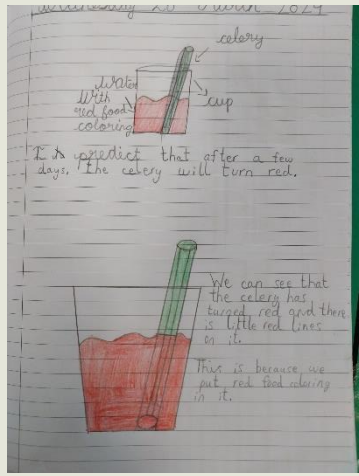 Wednesday 20 March 2024
celery
Water
With
red food
coloring
cup
I predict that after a few
days. the celery will turn red.
We can see that
the celery has
turned red and there
is little red lines
on it.
This is because we
put red food coloring
in it.